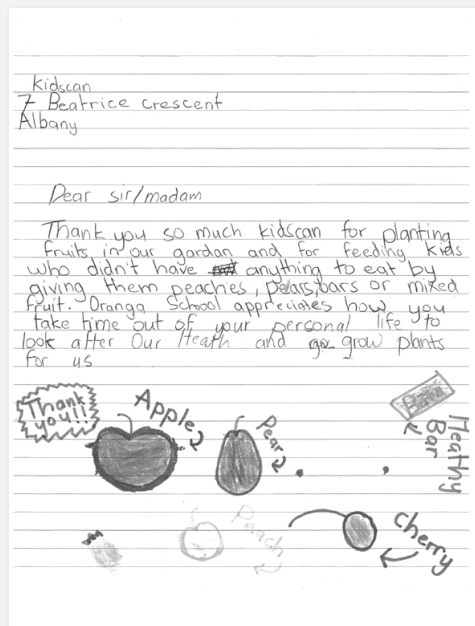 Kidscan
7 Beatrice crescent
Albany
Dear sir/madam
Thank you so much kidscan for planting
fruits in our gardan and for feeding kids
who didn't have anything to eat by
giving them peachies, pears, bars or mixed
fruit. Oranga School appreciates how you
take time out of your personal life to
look after Our Heath and grow plants
for us
Thank
you!!
Apple
Pear
Heathy
Bar
Peach
cherry